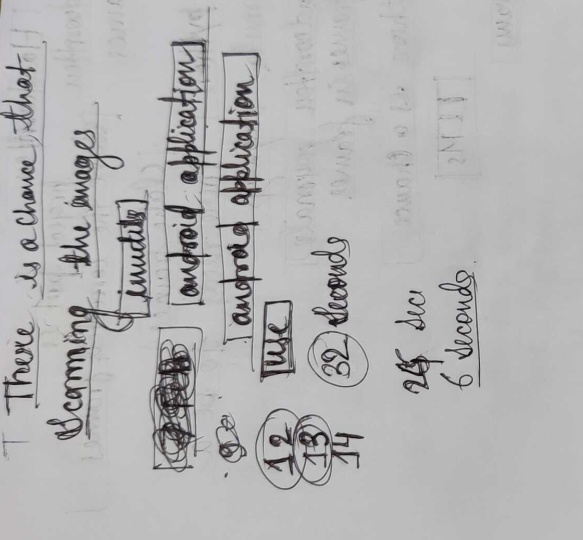 There is a chance that
Scanning the images
android application
android application
use
12 32 Seconds
13
14
Sec
6 Seconds